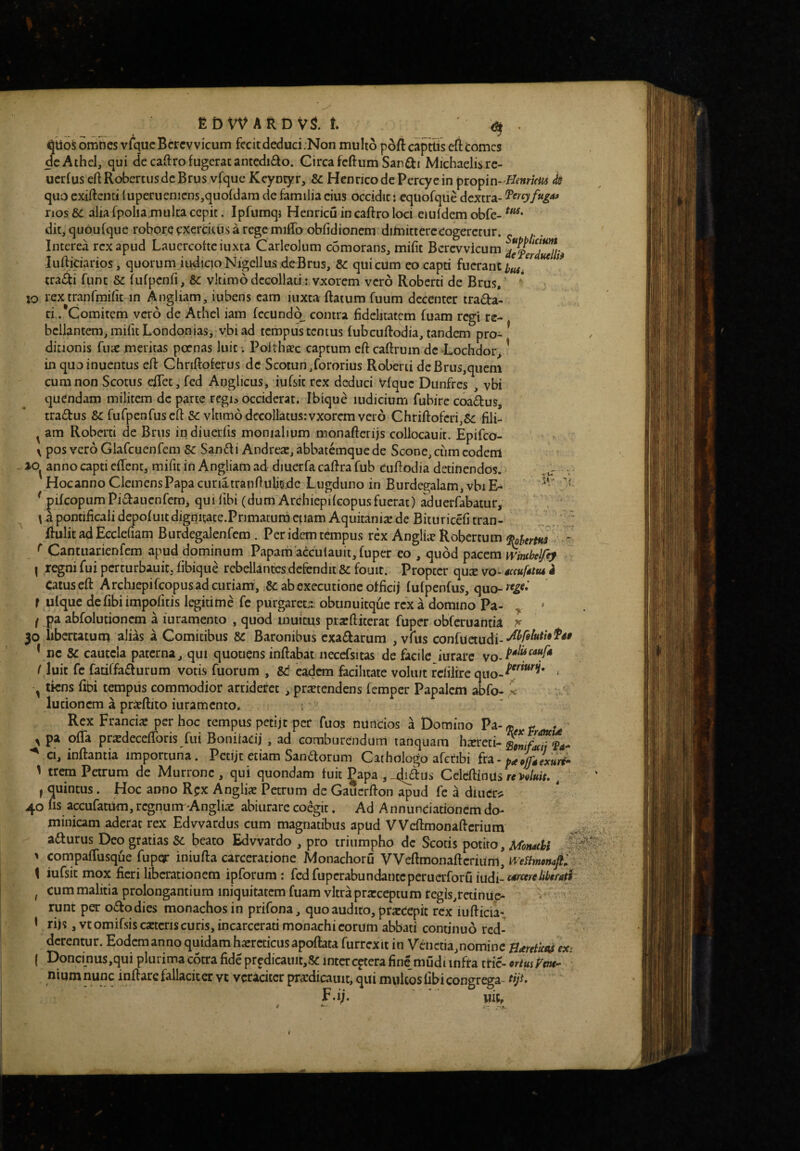 EDVVARDVS. I.
quos omnes vsque Bervvicum fecit deduci. Non multo pòst captus est comes
de Athel, qui de castro fugerat antedicto. Circa festum Sancti Michaelis re-
uersus est Robertus de Brus vsque Keyntyr, & Henrico de Percye in propin-
quo existenti superueniens, quosdam de familia eius occidit: equosque dextra-
rios & alia spolia multa cepit. Ipsumq; Henricū in castro loci eiusdem obse-
dit, quousque robore exercitus à rege misso obsidionem dimittere cogeretur.
Interea rex apud Lauercoste iuxta Carleolum cōmorans, misit Bervvicum
Iusticiarios, quorum iudicio Nigellus de Brus, & qui cum eo capti fuerant
tracti sunt & suspensi, & vltimò decollati: vxorem verò Roberti de Brus,
10 rex transmisit in Angliam, iubens eam iuxta statum suum decenter tracta-
ri. Comitem verò de Athel iam secundò contra fidelitatem suam regi re-
bellantem, misit Londonias, vbi ad tempus tentus sub custodia, tandem pro-
ditionis suæ meritas pœnas luit. Post hæc captum est castrum de Lochdor,
in quo inuentus est Christoferus de Scotun, sororius Roberti de Brus, quem
cum non Scotus esset, sed Anglicus, iussit rex deduci vsque Dunfres, vbi
quendam militem de parte regis occiderat. Ibique iudicium subire coactus,
tractus & suspensus est & vltimò decollatus: vxorem verò Christoferi, & fili-
am Roberti de Brus in diuersis monialium monasterijs collocauit. Episco-
pos verò Glascuensem & Sancti Andreæ, abbatémque de Scone, cùm eodem
20 anno capti essent, misit in Angliam ad diuersa castra sub custodia detinendos.
Hoc anno Clemens Papa curiā transtulit de Lugduno in Burdegalam, vbi E-
piscopum Pictauensem, qui sibi (dum Archiepiscopus fuerat) aduersabatur,
à pontificali deposuit dignitate. Primatum etiam Aquitaniæ de Bituricēsi tran-
stulit ad Ecclesiam Burdegalensem. Per idem tempus rex Angliæ Robertum
Cantuariensem apud dominum Papam accusauit, super eo, quòd pacem
regni sui perturbauit, sibique rebellantes defendit & fouit. Propter quæ vo-
catus est Archiepiscopus ad curiam, & ab executione officij suspensus, quo-
usque de sibi impositis legitimè se purgaret: obtinuitque rex à domino Pa-
pa absolutionem à iuramento, quod inuitus præstiterat super obseruantia
30 libertatum aliàs à Comitibus & Baronibus exactarum, vsus consuetudi-
ne & cautela paterna, qui quotiens instabat necessitas de facile iurare vo-
luit se satisfacturum votis suorum, & eadem facilitate voluit resilire quo-
tiens sibi tempus commodior arrideret, prætendens semper Papalem abso-
lutionem à præstito iuramento.
Rex Franciæ per hoc tempus petijt per suos nuncios à Domino Pa-
pa ossa prædecessoris sui Bonifacij, ad comburendum tanquam hæreti-
ci, instantia importuna. Petijt etiam Sanctorum Cathologo ascribi fra-
trem Petrum de Murrone, qui quondam fuit Papa, dictus Celestinus
quintus. Hoc anno Rex Angliæ Petrum de Gauerston apud se à diuer-
40 sis accusatum, regnum Angliæ abiurare coëgit. Ad Annunciationem do-
minicam aderat rex Edvvardus cum magnatibus apud VVestmonasterium
acturus Deo gratias & beato Edvvardo, pro triumpho de Scotis potito,
compassusque super iniusta carceratione Monachorū VVestmonasterium,
iussit mox fieri liberationem ipsorum: sed superabundante peruersorū iudi-
cum malitia prolongantium iniquitatem suam vltra præceptum regis, retinue-
runt per octo dies monachos in prisona, quo audito, præcepit rex iusticia-
rijs, vt omissis cæteris curis, incarcerati monachi eorum abbati continuò red-
derentur. Eodem anno quidam hæreticus apostata surrexit in Venetia, nomine
Doncinus, qui plurima cōtra fidē prędicauit, & inter cętera finē mūdi infra trie-
nium nunc instare fallaciter vt veraciter prædicauit, qui multos sibi congrega-
F.ij. uit,
Henricus de
Percy fuga-
tus.
Supplicium
de Perduellibus.
Robertus
Winchelsey
accusatus à
rege.
Absolutio Pa-
palis causa
periurij.
Rex Franciæ
Bonifacij Pa-
pæ ossa exuri-
re voluit.
Monachi
Westmonast.
carcere liberati
Hæreticus ex-
ortus Vene-
tijs.